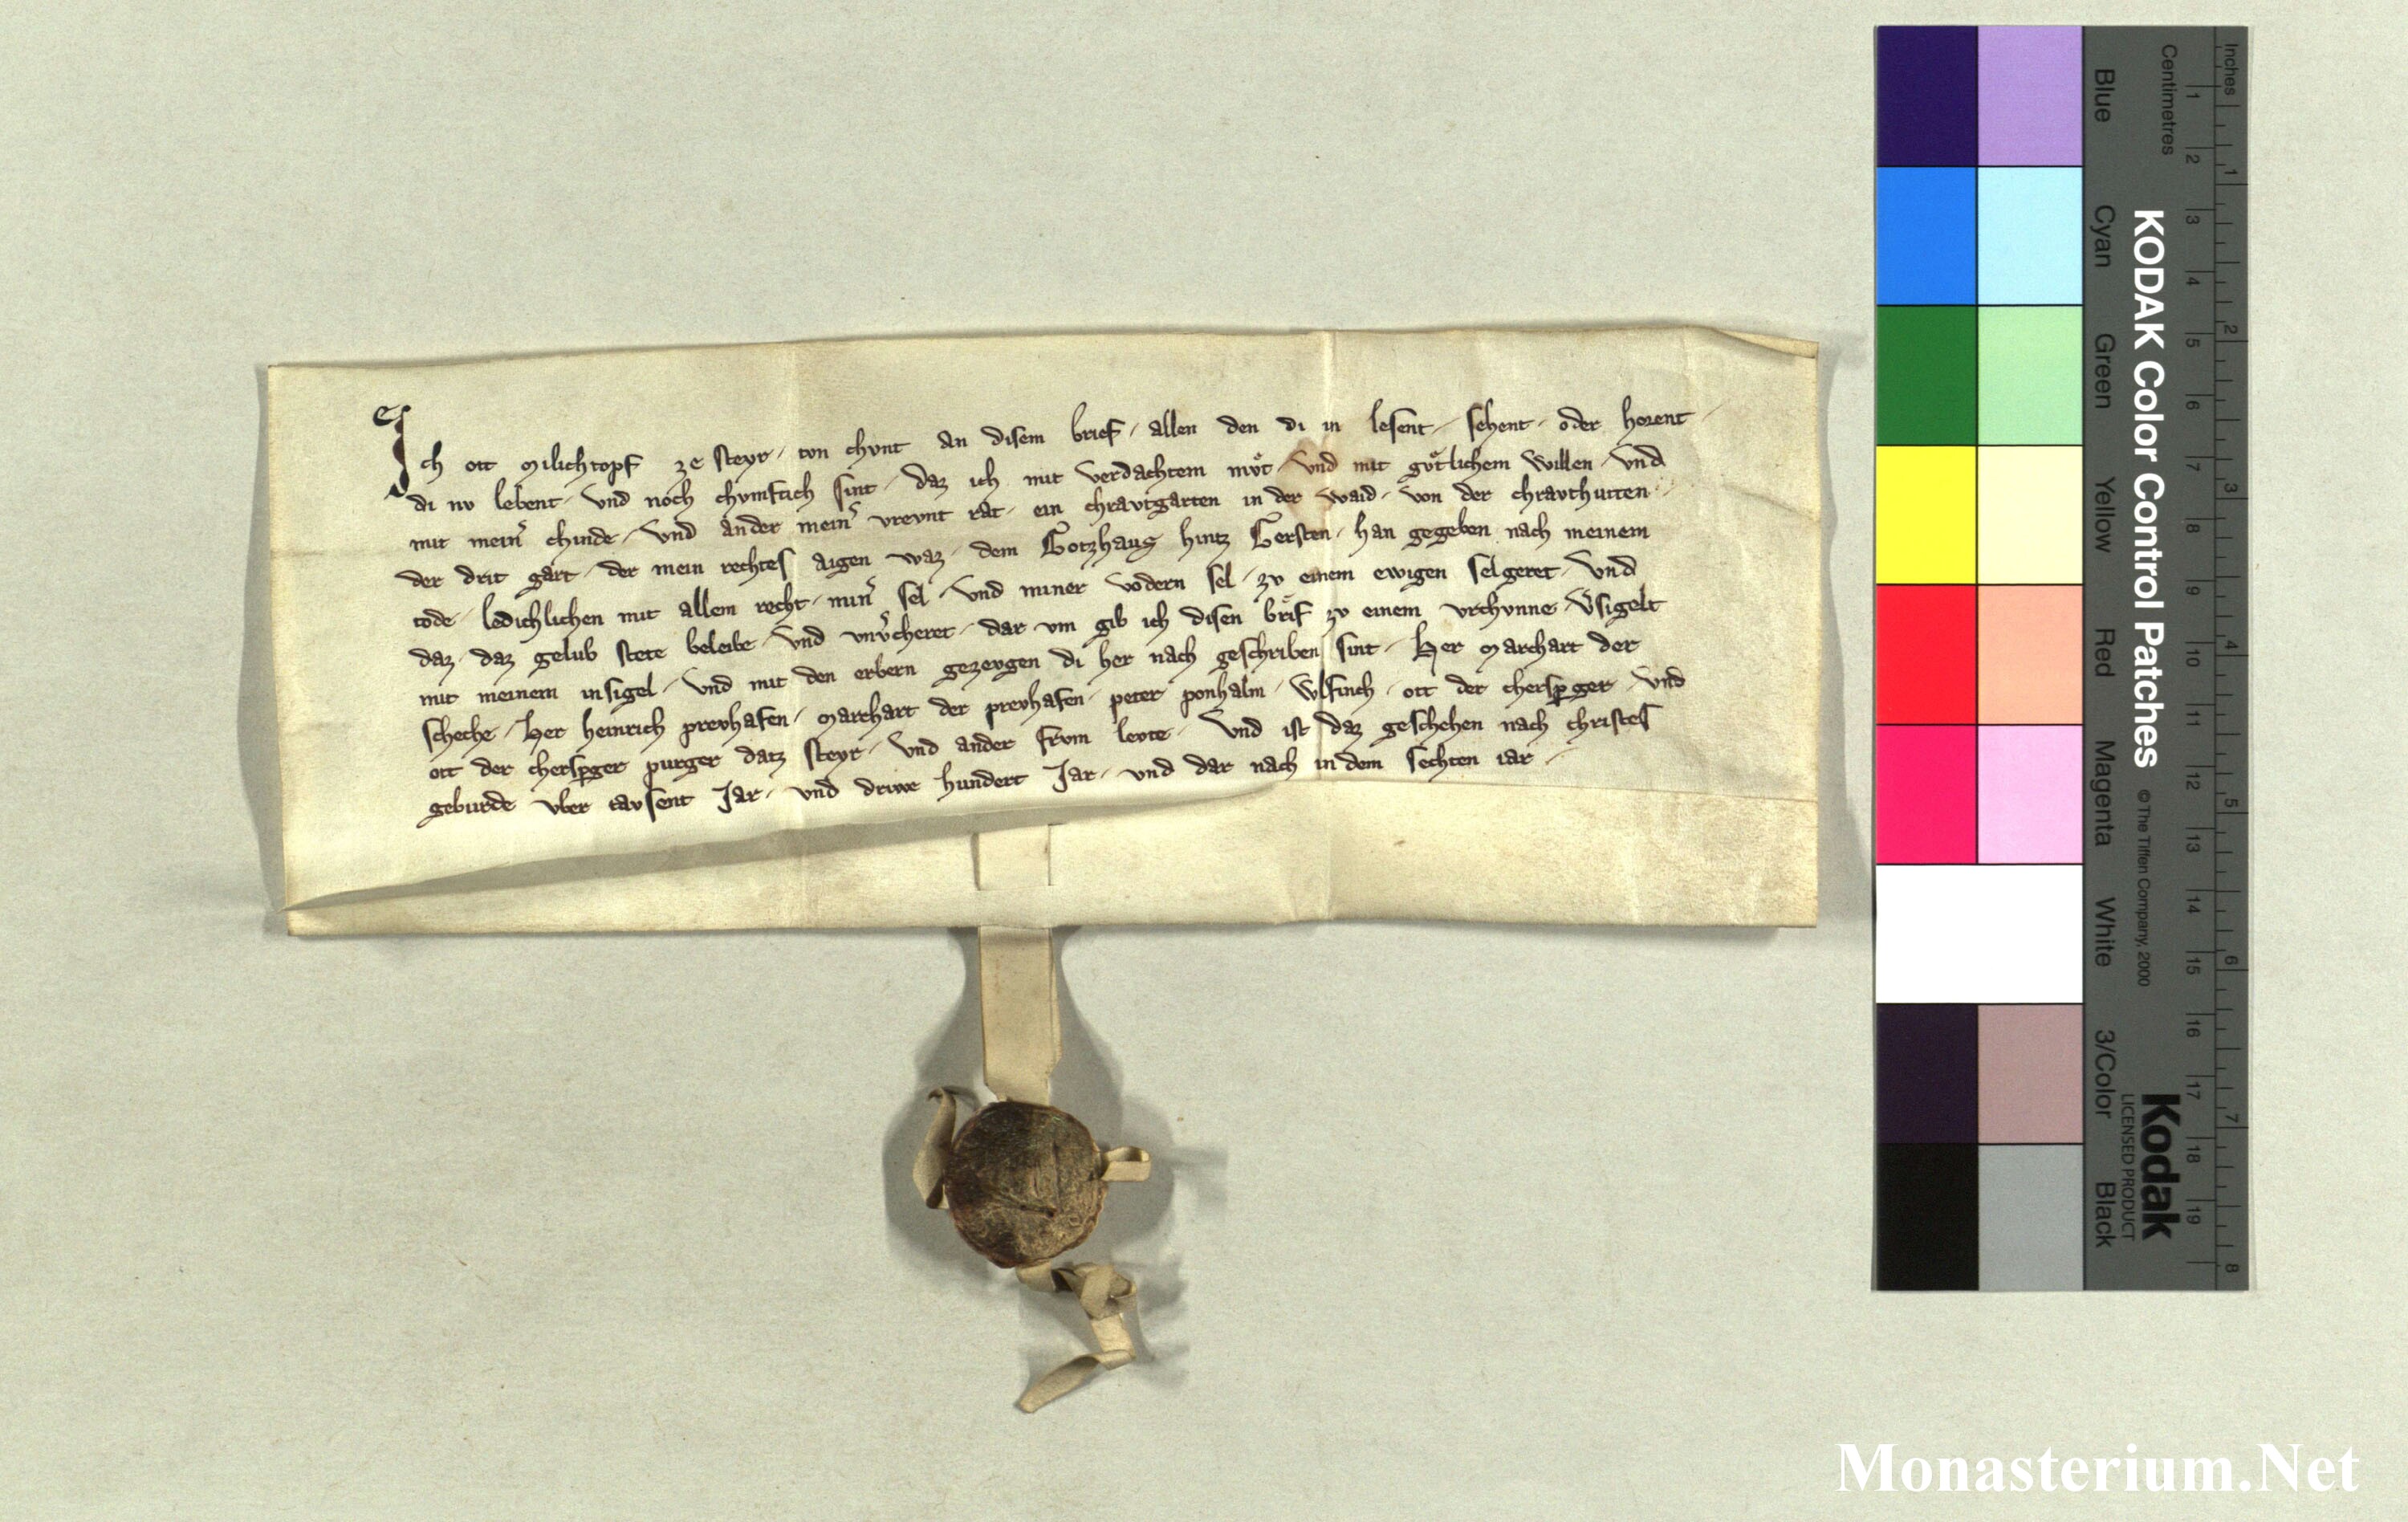 Ich ott Milichtopf ze Steyr / ton chvnt an disem brief / allen den di in lesent / sehent / oder horent /
di nv lebent / vnd noch chvmftich sint / daz ich mit verdachtem mvͦt / vnd mit gvͤtlichem willen / vnd
mit mein̾ chinde / vnd ander mein̾ vrevnt rat / ein chravtgarten in der waid / von der chravthutten /
der drit gart / der mein rechtes aigen waz / dem Gotzhaus hintz Gersten / han gegeben nach meinem
tode / ledichlichen mit allem recht / min̾ sel / vnd miner vodern sel / zv einem ewigen selgeret / vnd
daz / daz gelub stete beleibe / vnd vnv̾cheret / dar vm gib ich disen brif zv einem vrchvnne / v̾sigelt
mit meinem insigel / vnd mit den erbern gezevgen di her nach geschriben sint / Her Marchart der
scheche / Her heinrich prevhafen / Marchart der prevhafen / peter ponhalm / wlfinch / ott der chersp̲ger / vnd
ott der chersp̲ger purger datz steyr / vnd ander frvm levte / vnd ist daz geschehen nach christes
geburde vber tavsent Jar / vnd driwe hundert Jar / vnd dar nach in dem sechten iar /
KODAK Color Control Patches
© The Tiffen Company, 2000
Kodak
LICENSED PRODUCT
Inches
1 2 3 4 5 6 7 8
Centimetres
1 2 3 4 5 6 7 8 9 10 11 12 13 14 15 16 17 18 19
Blue
Cyan
Green
Yellow
Red
Magenta
White
3/Color
Black
Monasterium.Net